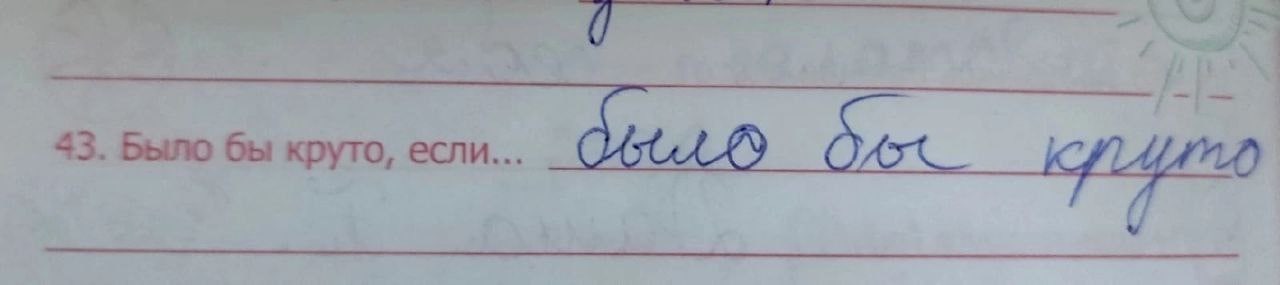 43. Было бы круто, если... было бы круто